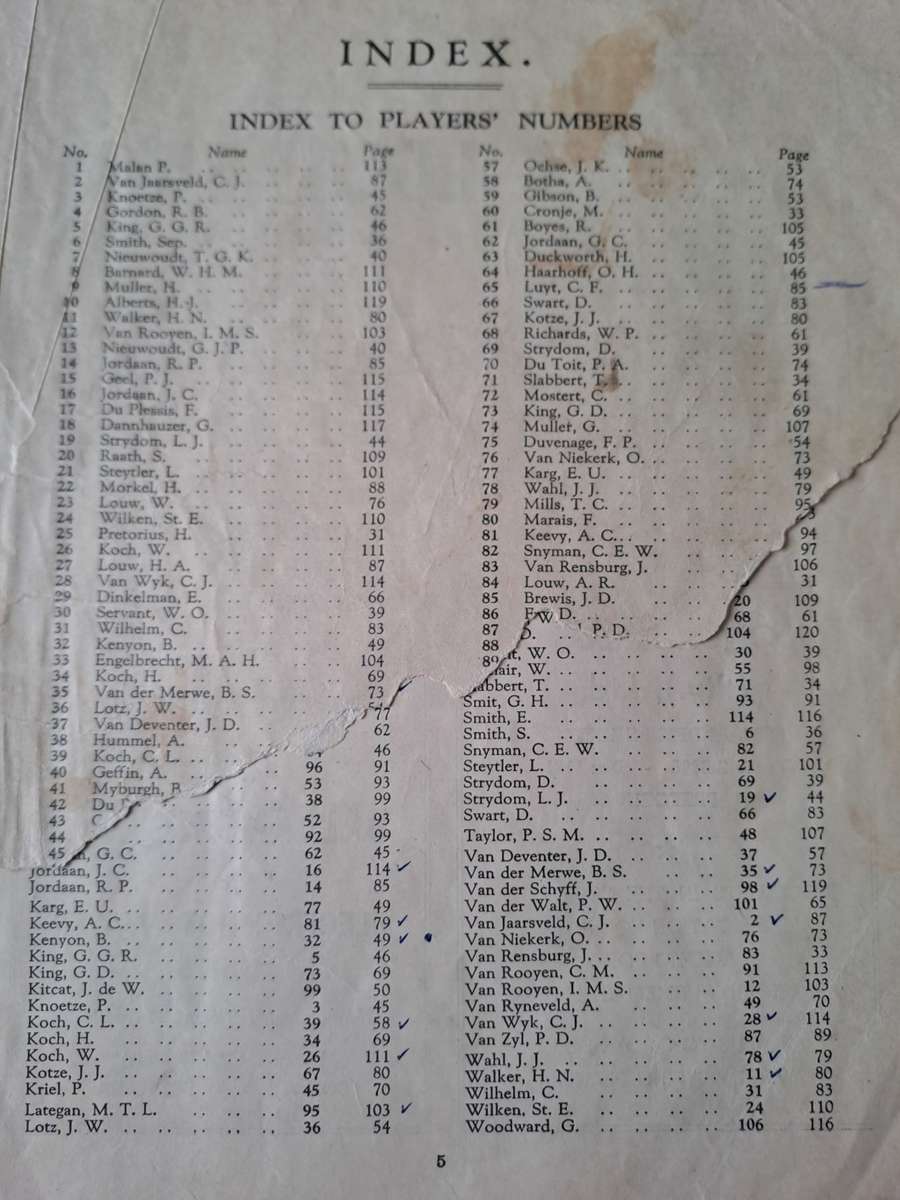 INDEX.
INDEX TO PLAYERS' NUMBERS
No. Name Page
1 Malan P. .. .. .. 113
2 Van Jaarsveld, C. J. .. .. 87
3 Knoetze, P. .. .. .. .. 45
4 Gordon, R. B. .. .. .. 62
5 King, G. G. R. .. .. .. 46
6 Smith, Sep. .. .. .. .. 36
7 Nieuwoudt, T. G. K. .. .. 40
8 Barnard, W. H. M. .. .. .. 111
9 Muller, H. .. .. .. .. 110
10 Alberts, H. J. .. .. .. 119
11 Walker, H. N. .. .. .. 80
12 Van Rooyen, I. M. S. .. .. 103
13 Nieuwoudt, G. J. P. .. .. 40
14 Jordaan, R. P. .. .. .. 85
15 Geel, P. J. .. .. .. .. 115
16 Jordaan, J. C. .. .. .. 114
17 Du Plessis, F. .. .. .. 115
18 Dannhauzer, G. .. .. .. 117
19 Strydom, L. J. .. .. .. 44
20 Raath, S. .. .. .. .. 109
21 Steytler, L. .. .. .. .. 101
22 Morkel, H. .. .. .. .. 88
23 Louw, W. .. .. .. .. 76
24 Wilken, St. E. .. .. .. 110
25 Pretorius, H. .. .. .. 31
26 Koch, W. .. .. .. .. 111
27 Louw, H. A. .. .. .. .. 87
28 Van Wyk, C. J. .. .. .. 114
29 Dinkelman, E. .. .. .. 66
30 Servant, W. O. .. .. .. 39
31 Wilhelm, C. .. .. .. .. 83
32 Kenyon, B. .. .. .. .. 49
33 Engelbrecht, M. A. H. .. .. 104
34 Koch, H. .. .. .. .. 69
35 Van der Merwe, B. S. .. .. 73
36 Lotz, J. W. .. .. .. ..
37 Van Deventer, J. D. .. ..
38 Hummel, A. .. ..
39 Koch, C. L. .. ..
40 Geffin, A. ..
41 Myburgh,
42 Du
43
44
45
No. Name Page
57 Ochse, J. K. .. .. .. .. 53
58 Botha, A. .. .. .. .. 74
59 Gibson, B. .. .. .. .. 53
60 Cronje, M. .. .. .. .. 33
61 Boyes, R. .. .. .. .. 105
62 Jordaan, G. C. .. .. .. 45
63 Duckworth, H. .. .. .. 105
64 Haarhoff, O. H. .. .. .. 46
65 Luyt, C. F. .. .. .. .. 85
66 Swart, D. .. .. .. .. 83
67 Kotze, J. J. .. .. .. .. 80
68 Richards, W. P. .. .. .. 61
69 Strydom, D. .. .. .. .. 39
70 Du Toit, P. A. .. .. .. 74
71 Slabbert, T. .. .. .. .. 34
72 Mostert, C. .. .. .. .. 61
73 King, G. D. .. .. .. .. 69
74 Muller, G. .. .. .. .. 107
75 Duvenage, F. P. .. .. .. 54
76 Van Niekerk, O. .. .. .. 73
77 Karg, E. U. .. .. .. .. 49
78 Wahl, J. J. .. .. .. .. 79
79 Mills, T. C. .. .. .. .. 95
80 Marais, F. .. .. .. ..
81 Keevy, A. C. .. .. ..
82 Snyman, C. E. W. .. ..
83 Van Rensburg, J. .. ..
84 Louw, A. R. .. ..
85 Brewis, J. D. .. ..
86 D. .. ..
87
88
94
97
106
31
20 109
68 61
P. D. 104 120
W. O. .. .. .. .. 30 39
W. .. .. .. .. 55 98
T. .. .. .. .. 71 34
Smit, G. H. .. .. .. .. 93 91
Smith, E. .. .. .. .. 114 116
Smith, S. .. .. .. .. 6 36
Snyman, C. E. W. .. .. .. 82 57
Steytler, L. .. .. .. .. 21 101
Strydom, D. .. .. .. .. 69 39
Strydom, L. J. .. .. .. 19 ✓ 44
Swart, D. .. .. .. .. 66 83
Taylor, P. S. M. .. .. .. .. 48 107
Van Deventer, J. D. .. .. .. 37 57
Van der Merwe, B. S. .. .. 35 ✓ 73
Van der Schyff, J. .. .. .. 98 ✓ 119
Van der Walt, P. W. .. .. .. 101 65
Van Jaarsveld, C. J. .. .. .. 2 ✓ 87
Van Niekerk, O. .. .. .. .. 76 73
Van Rensburg, J. .. .. .. .. 83 33
Van Rooyen, C. M. .. .. .. 91 113
Van Rooyen, I. M. S. .. .. 12 103
Van Ryneveld, A. .. .. .. 49 70
Van Wyk, C. J. .. .. .. .. 28 ✓ 114
Van Zyl, P. D. .. .. .. .. 87 89
Wahl, J. J. .. .. .. .. 78 ✓ 79
Walker, H. N. .. .. .. .. 11 ✓ 80
Wilhelm, C. .. .. .. .. 31 83
Wilken, St. E. .. .. .. .. 24 110
Woodward, G. .. .. .. .. 106 116
77
62
46
96 91
53 93
38 99
52 93
92 99
G. C. .. .. .. .. 62 45
Jordaan, J. C. .. .. .. .. 16 114 ✓
Jordaan, R. P. .. .. .. .. 14 85
Karg, E. U. .. .. .. .. 77 49
Keevy, A. C. .. .. .. .. 81 79 ✓
Kenyon, B. .. .. .. .. 32 49 ✓
King, G. G. R. .. .. .. .. 5 46
King, G. D. .. .. .. .. 73 69
Kitcat, J. de W. .. .. .. .. 99 50
Knoetze, P. .. .. .. .. 3 45
Koch, C. L. .. .. .. .. 39 58 ✓
Koch, H. .. .. .. .. 34 69
Koch, W. .. .. .. .. 26 111 ✓
Kotze, J. J. .. .. .. .. 67 80
Kriel, P. .. .. .. .. 45 70
Lategan, M. T. L. .. .. .. 95 103 ✓
Lotz, J. W. .. .. .. .. 36 54
5